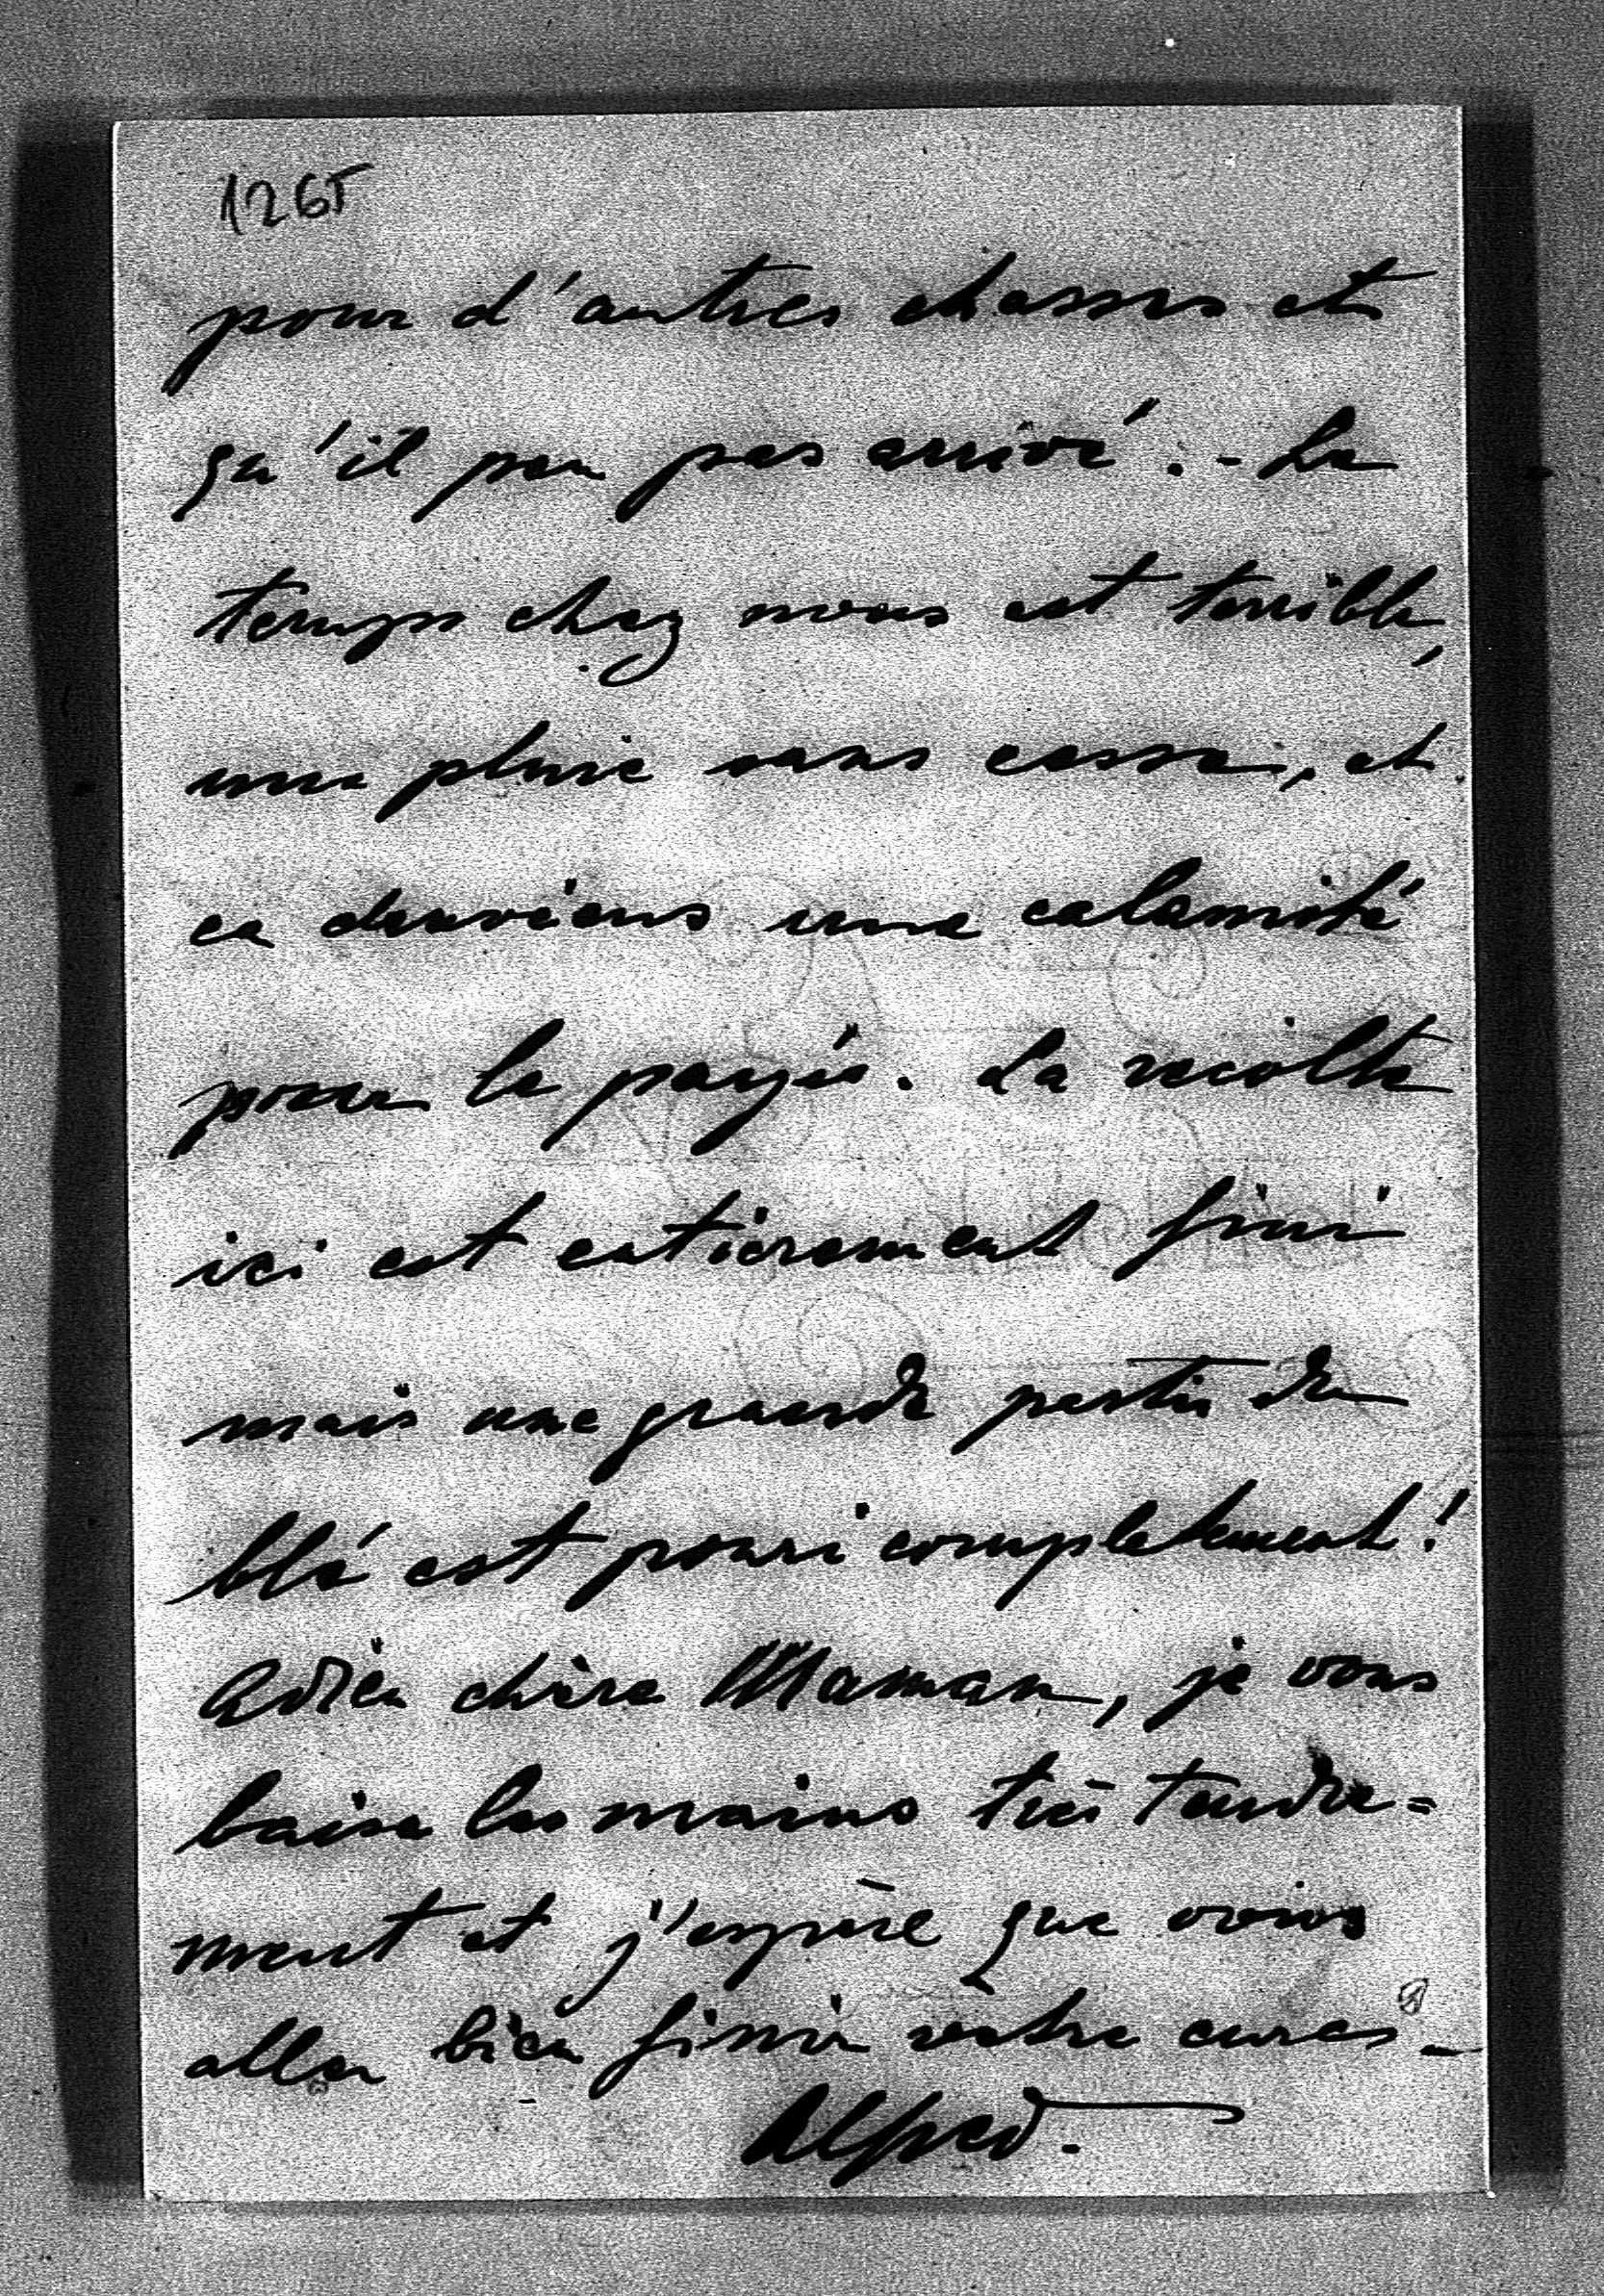 1265
pour d'autres chasses et
qu'il peu pas arrivé. - Le
temps chez nous est terrible,
une pluie sans cesse, et
ca deaviens une calamité
pour le payis. La recolte
ici est entièrement fini
mais une grande partie de
blé est pouri completement!
Adieu chère Maman, je vous
baise les mains très tendre=
ment et j'espère que vous
aller bien finir votre cures -
Alfred.